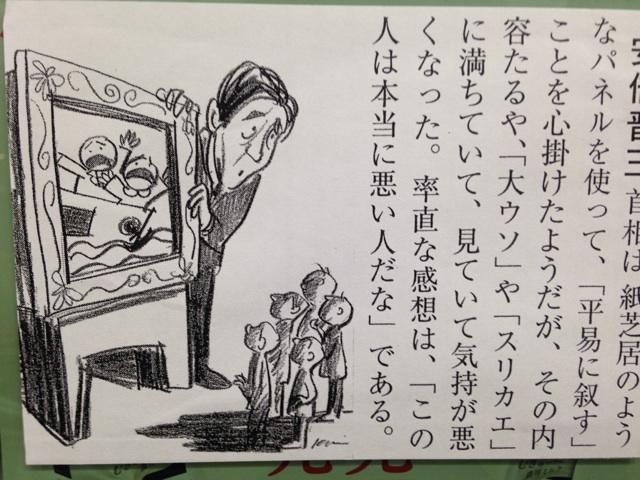 安倍晋三首相は紙芝居のよう
なパネルを使って、「平易に叙す」
ことを心掛けたようだが、その内
容たるや、「大ウソ」や「スリカエ」
に満ちていて、見ていて気持が悪
くなった。率直な感想は、「この
人は本当に悪い人だな」である。